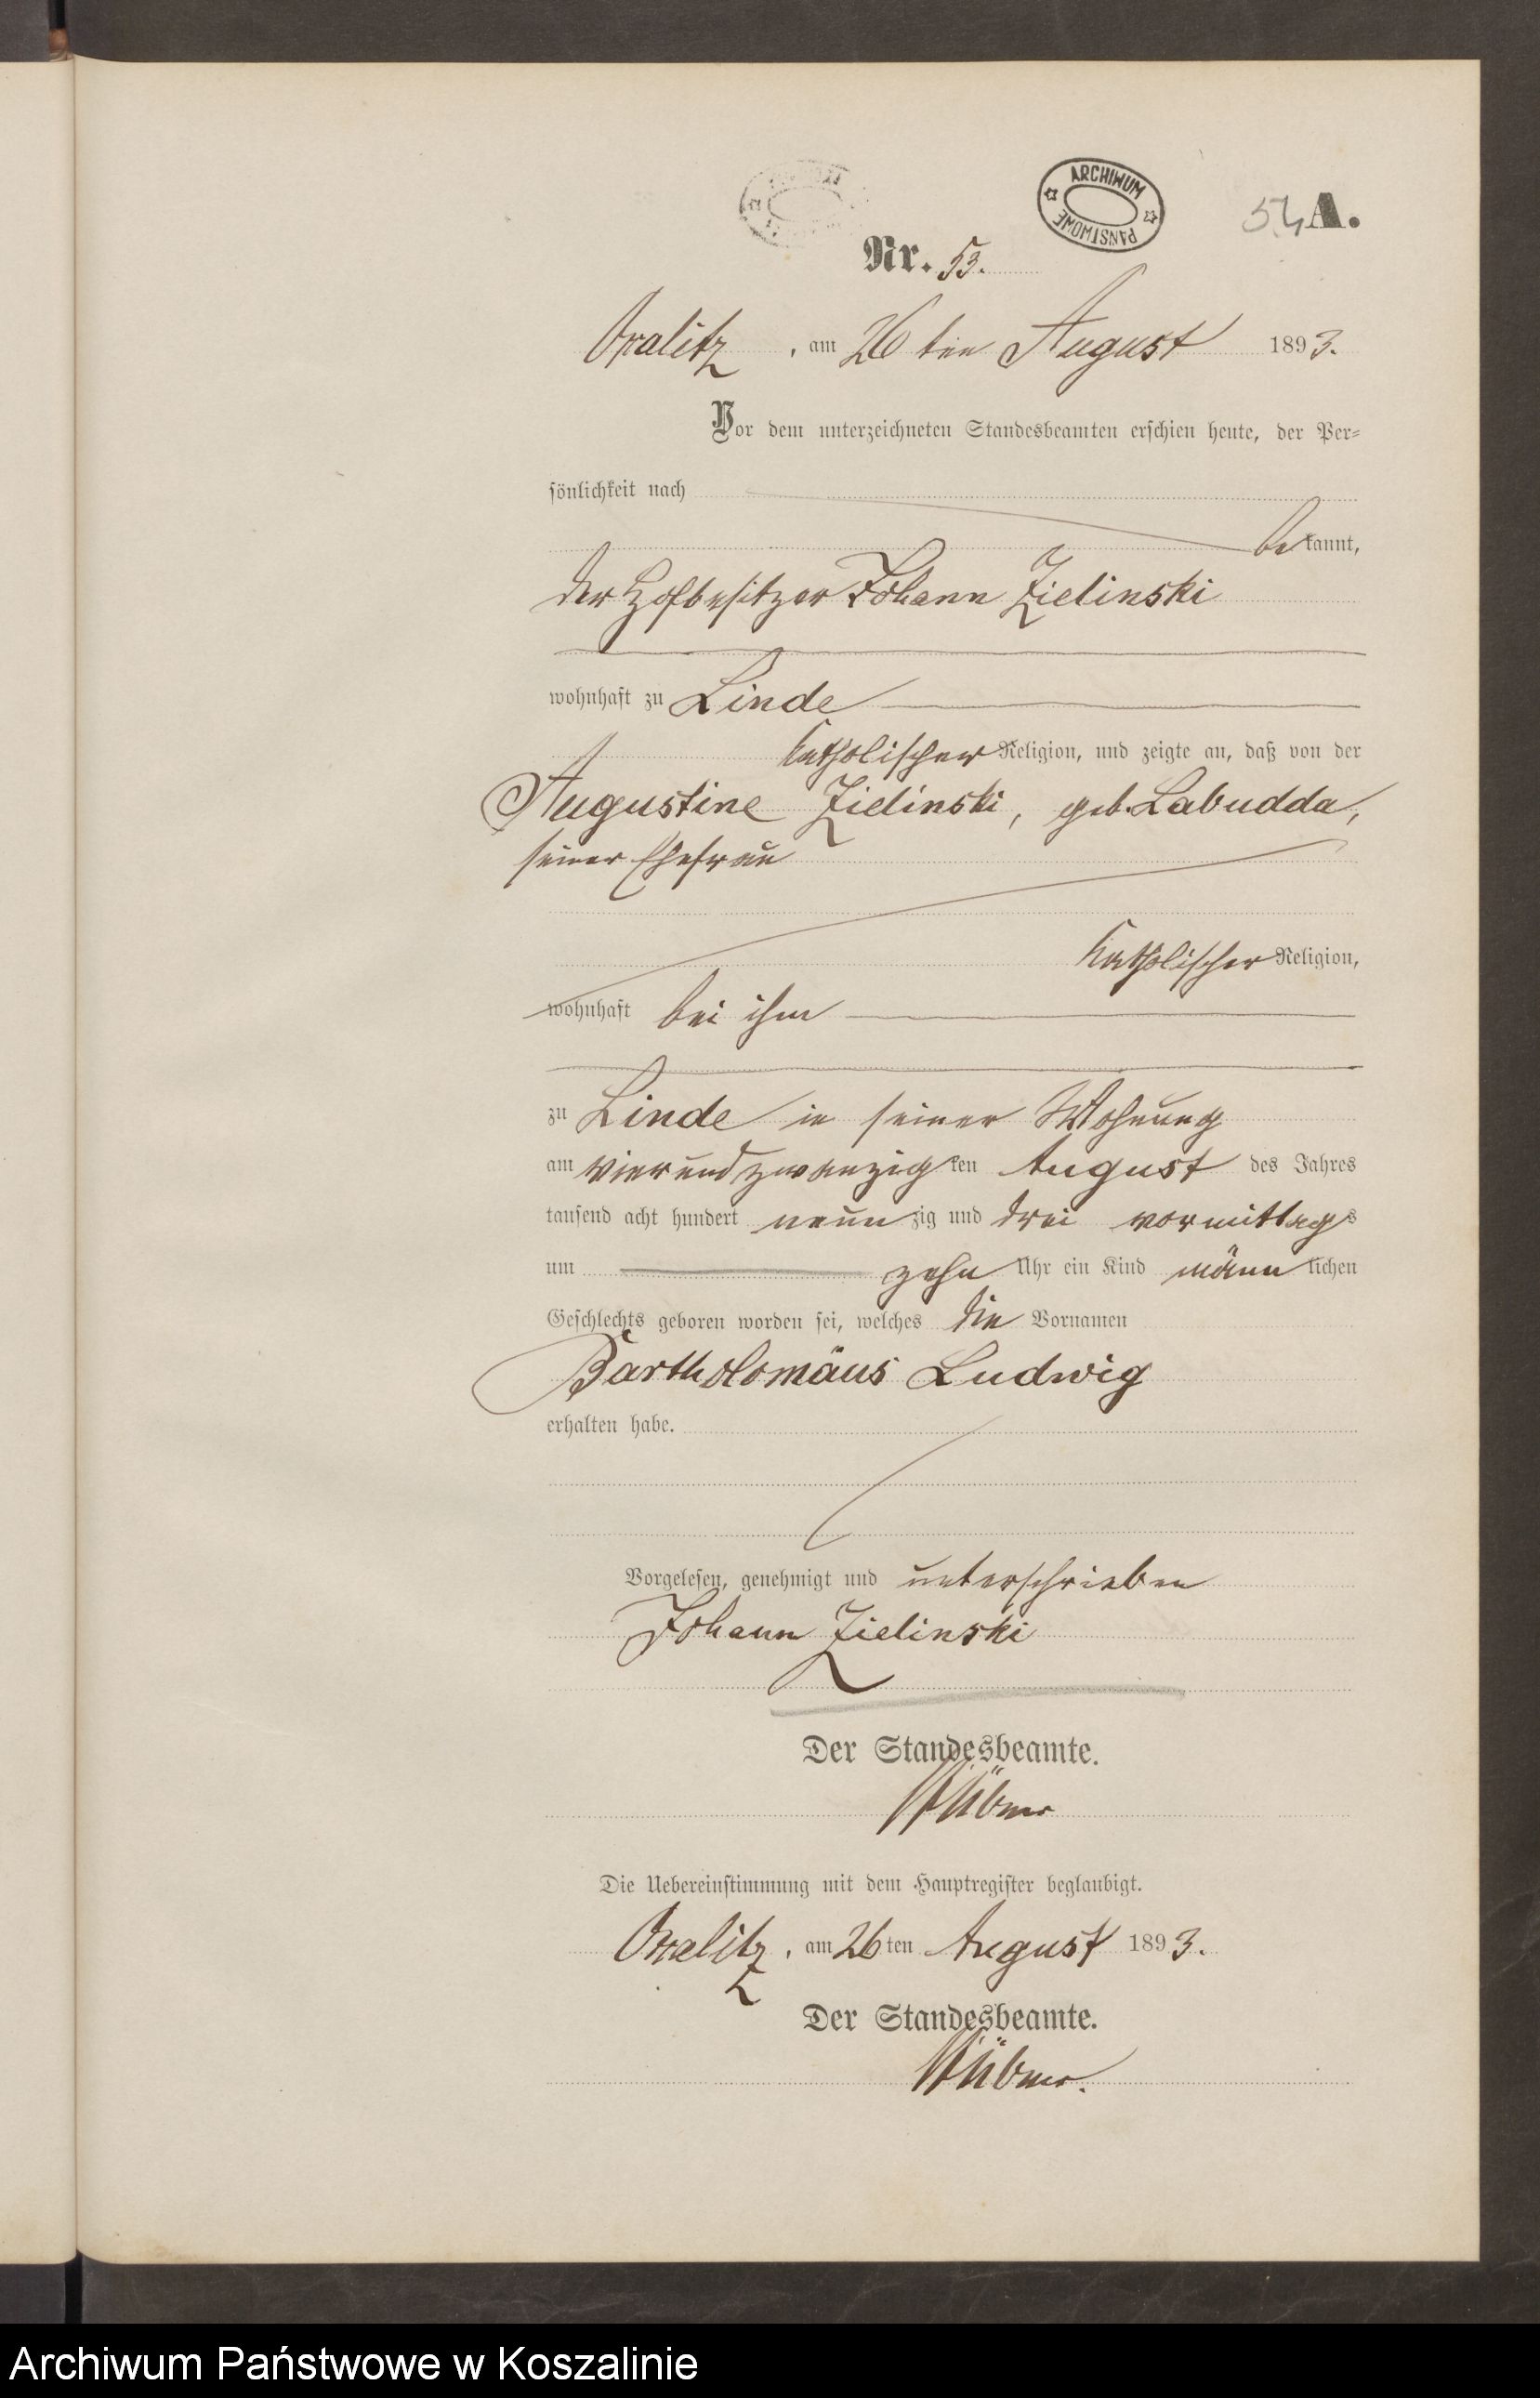 ARCHIWUM PAŃSTWOWE
54 A.
Nr. 53.
Oralitz, am 26 ten August 1893.
Vor dem unterzeichneten Standesbeamten erschien heute, der Per=
sönlichkeit nach
bekannt,
der Hofbesitzer Johann Zielinski
wohnhaft zu Linde
katholischer Religion, und zeigte an, daß von der
Augustine Zielinski, geb. Labudda,
seiner Ehefrau
katholischer Religion,
wohnhaft bei ihm
zu Linde in seiner Wohnung
am vierundzwanzigten August des Jahres
tausend acht hundert neunzig und drei vormittags
um zehn Uhr ein Kind männlichen
Geschlechts geboren worden sei, welches die Vornamen
Bartholomäus Ludwig
erhalten habe.
Vorgelesen, genehmigt und unterschrieben
Johann Zielinski
Der Standesbeamte.
Die Uebereinstimmung mit dem Hauptregister beglaubigt.
Oralitz, am 26ten August 1893.
Der Standesbeamte.
Archiwum Państwowe w Koszalinie